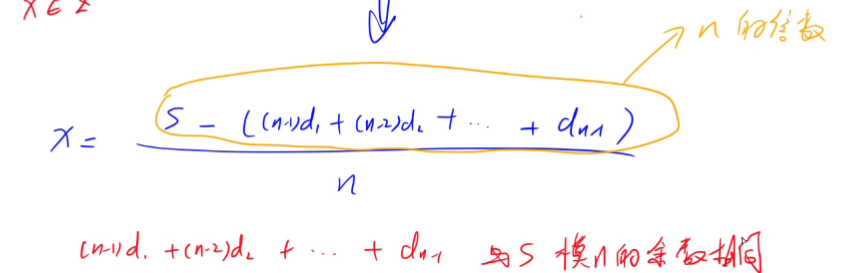 x ∈ Z
n 的倍数
x = \frac{s - ((n-1)d_1 + (n-2)d_2 + ⋯ + d_{n-1})}{n}
(n-1)d_1 + (n-2)d_2 + ⋯ + d_{n-1} 与 S 模n的余数相同